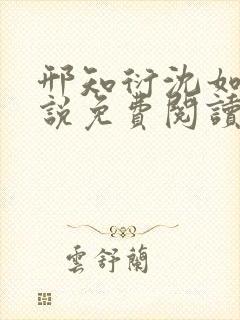 邢知衍沈如
說免費閱讀
雲舒蘭